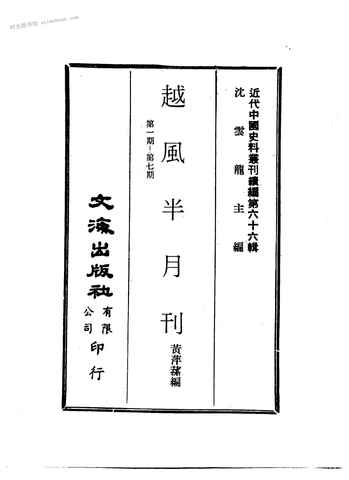 近代中國史料叢刊續編第六十六輯
沈雲龍主編
越風半月刊
第一期-第七期
黃萍蓀編
文海出版社有限公司印行